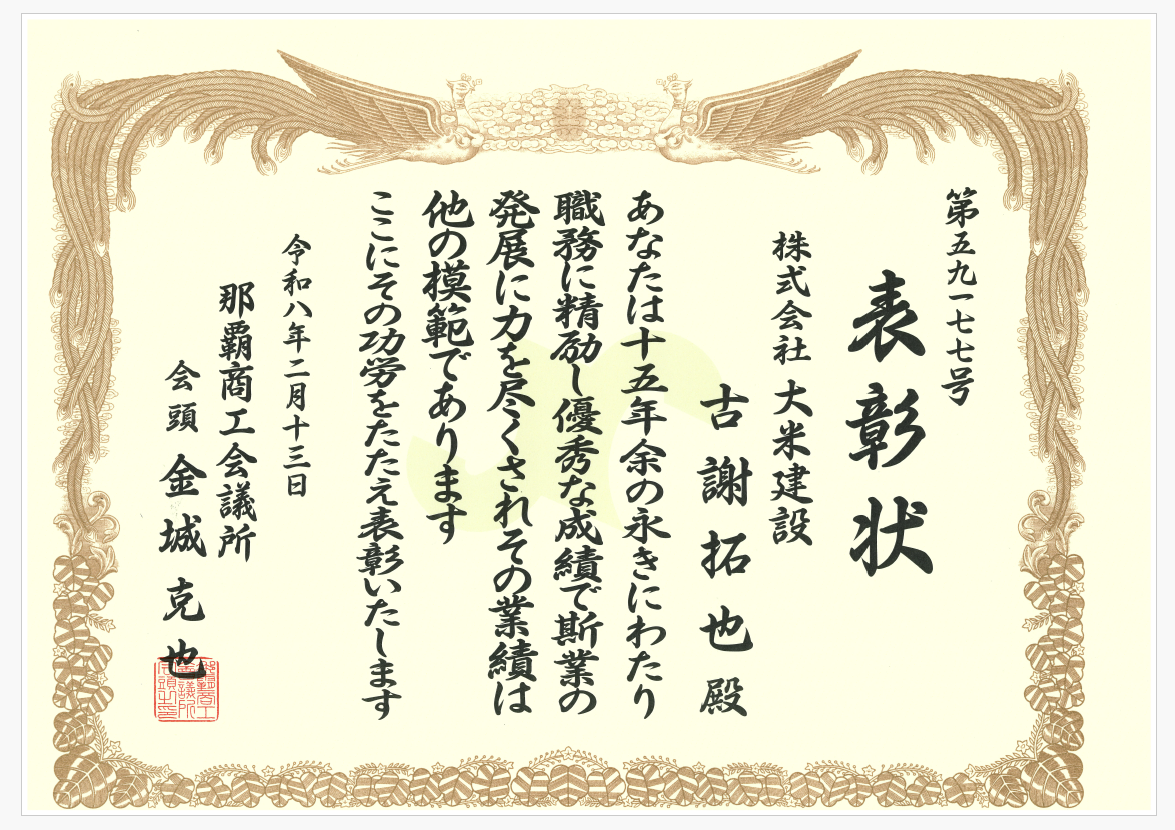 第五九一七七号
表彰状
株式会社 大米建設
古謝拓也殿
あなたは十五年余の永きにわたり
職務に精励し優秀な成績で斯業の
発展に力を尽くされその業績は
他の模範であります
ここにその功労をたたえ表彰いたします
令和八年二月十三日
那覇商工会議所
会頭 金城克也